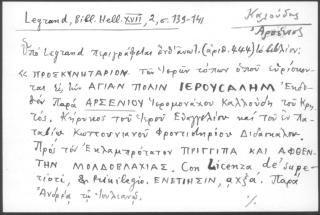 Legrand, Bibl. Hell. XVII, 2, σ. 139-141
Καλούδης
Ἀρσένιος
Ὑπὸ Legrand περιγράφεται (ἀριθ. 444) τὸ βιβλίον:
« ΠΡΟΣΚΥΝΗΤΑΡΙΟΝ τῶν Ἱερῶν τόπων ὁποῦ εὑρίσκον-
ται εἰς τὴν ΑΓΙΑΝ ΠΟΛΙΝ ΙΕΡΟΥΣΑΛΗΜ Ἐκδο-
θὲν Παρὰ ΑΡΣΕΝΙΟΥ Ἱερομονάχου Καλλούδη τοῦ Κρη-
τός. Κήρυκος τοῦ Ἱεροῦ Εὐαγγελίου καὶ τοῦ ἐν Πα-
ταβίῳ Κωττουνιανοῦ Φροντιστηρίου Διδασκάλου.
Πρὸς τὸν Ἐκλαμπρότατον ΠΡΙΓΓΙΠΑ ΚΑΙ ΑΦΘΕΝ-
ΤΗΝ ΜΟΛΔΟΒΛΑΧΙΑΣ. Con Licenza de' Supe-
riori, & Privilegio. ΕΝΕΤΙΗΣΙΝ, αχξα. Παρὰ
Ἀνδρέᾳ τῷ Ἰουλιανῷ.
·/.